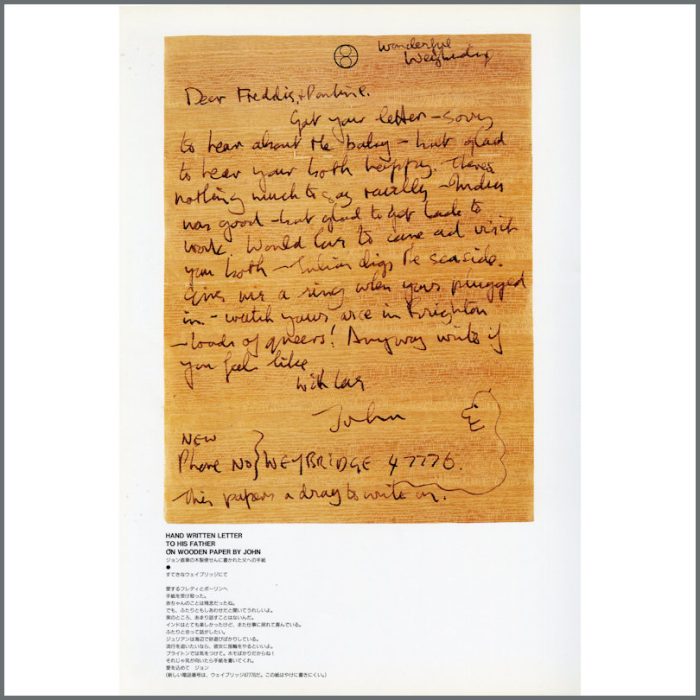 Wonderful
Weybridge
Dear Freddie, + Pauline.
Got your letter – sorry
to hear about the baby – but glad
to hear your both happy. Theres
nothing much to say really – India
was good – but glad to get back to
work. Would love to come and visit
you both – Julian digs the seaside.
Give us a ring when yours plugged
in. – watch yours arce in Brighton
– loads of queers! Anyway write if
you feel like
With Love
John
NEW
Phone No} WEYBRIDGE 47776.
This papers a drag to write on.
HAND WRITTEN LETTER
TO HIS FATHER
ON WOODEN PAPER BY JOHN
ジョン直筆の木製便せんに書かれた父への手紙
●
すてきなウェイブリッジにて
愛するフレディとポーリンへ
手紙を受け取った。
赤ちゃんのことは残念だったね。
でも、ふたりともしあわせだと聞いてうれしいよ。
実のところ、あまり話すことはないんだ。
インドはとても楽しかったけど、また仕事に戻れて喜んでいる。
ふたりと会って話がしたい。
ジュリアンは海辺で砂遊びばかりしている。
流行を追いたいなら、彼女に指輪をやるといい。
ブライトンでは気をつけて。ホモばかりだからね!
それじゃ気が向いたら手紙を書いてくれ。
愛を込めて ジョン
(新しい電話番号は、ウェイブリッジ47776だ。この紙はやけに書きにくい。)